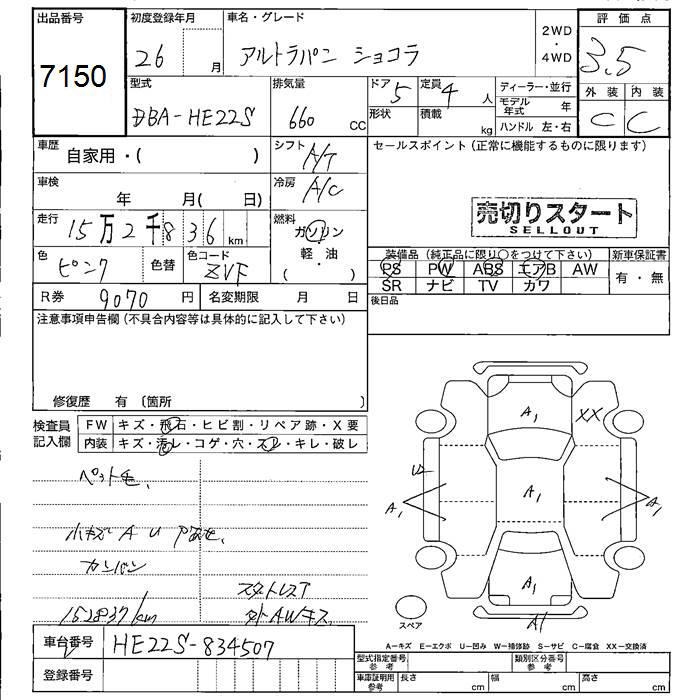 出品番号 初度登録年月 車名・グレード 2WD・4WD 評価点
7150 26 月 アルトラパン ショコラ 3.5
型式 排気量 ドア 5 定員 4 人 ディーラー・並行 外装 内装
DBA-HE22S 660 CC 形状 積載 kg モデル年式 年 C C
ハンドル 左・右
車歴 自家用・( ) シフト A/T セールスポイント (正常に機能するものに限ります)
車検 年 月( 日) 冷房 A/C
売切りスタート
SELLOUT
走行 15万2千836 km 燃料 ガソリン
色 ピンク 色替 色コード ZVF 軽・油 ( )
装備品 (純正品に限り○をつけて下さい) 新車保証書
PS PW ABS エアB AW 有・無
SR ナビ TV カワ
R券 9070 円 名変期限 月 日 後日品
注意事項申告欄 (不具合内容等は具体的に記入して下さい)
修復歴 有 (箇所 )
検査員記入欄 FW キズ・飛石・ヒビ割・リペア跡・X要
内装 キズ・汚レ・コゲ・穴・スレ・キレ・破レ
ペット毛、
小キズAU
カンバン
スタットレスT
152837km 外AWキズ
A1 XX
U2
A1 A1 A1
A1
A1
スペア
A-キズ E-エクボ U-凹み W-補修跡 S-サビ C-腐食 XX-交換済
車台番号 HE22S-834507
型式指定番号 参考 類別区分番号 参考
登録番号 車庫証明用 参考 長さ cm 幅 cm 高さ cm